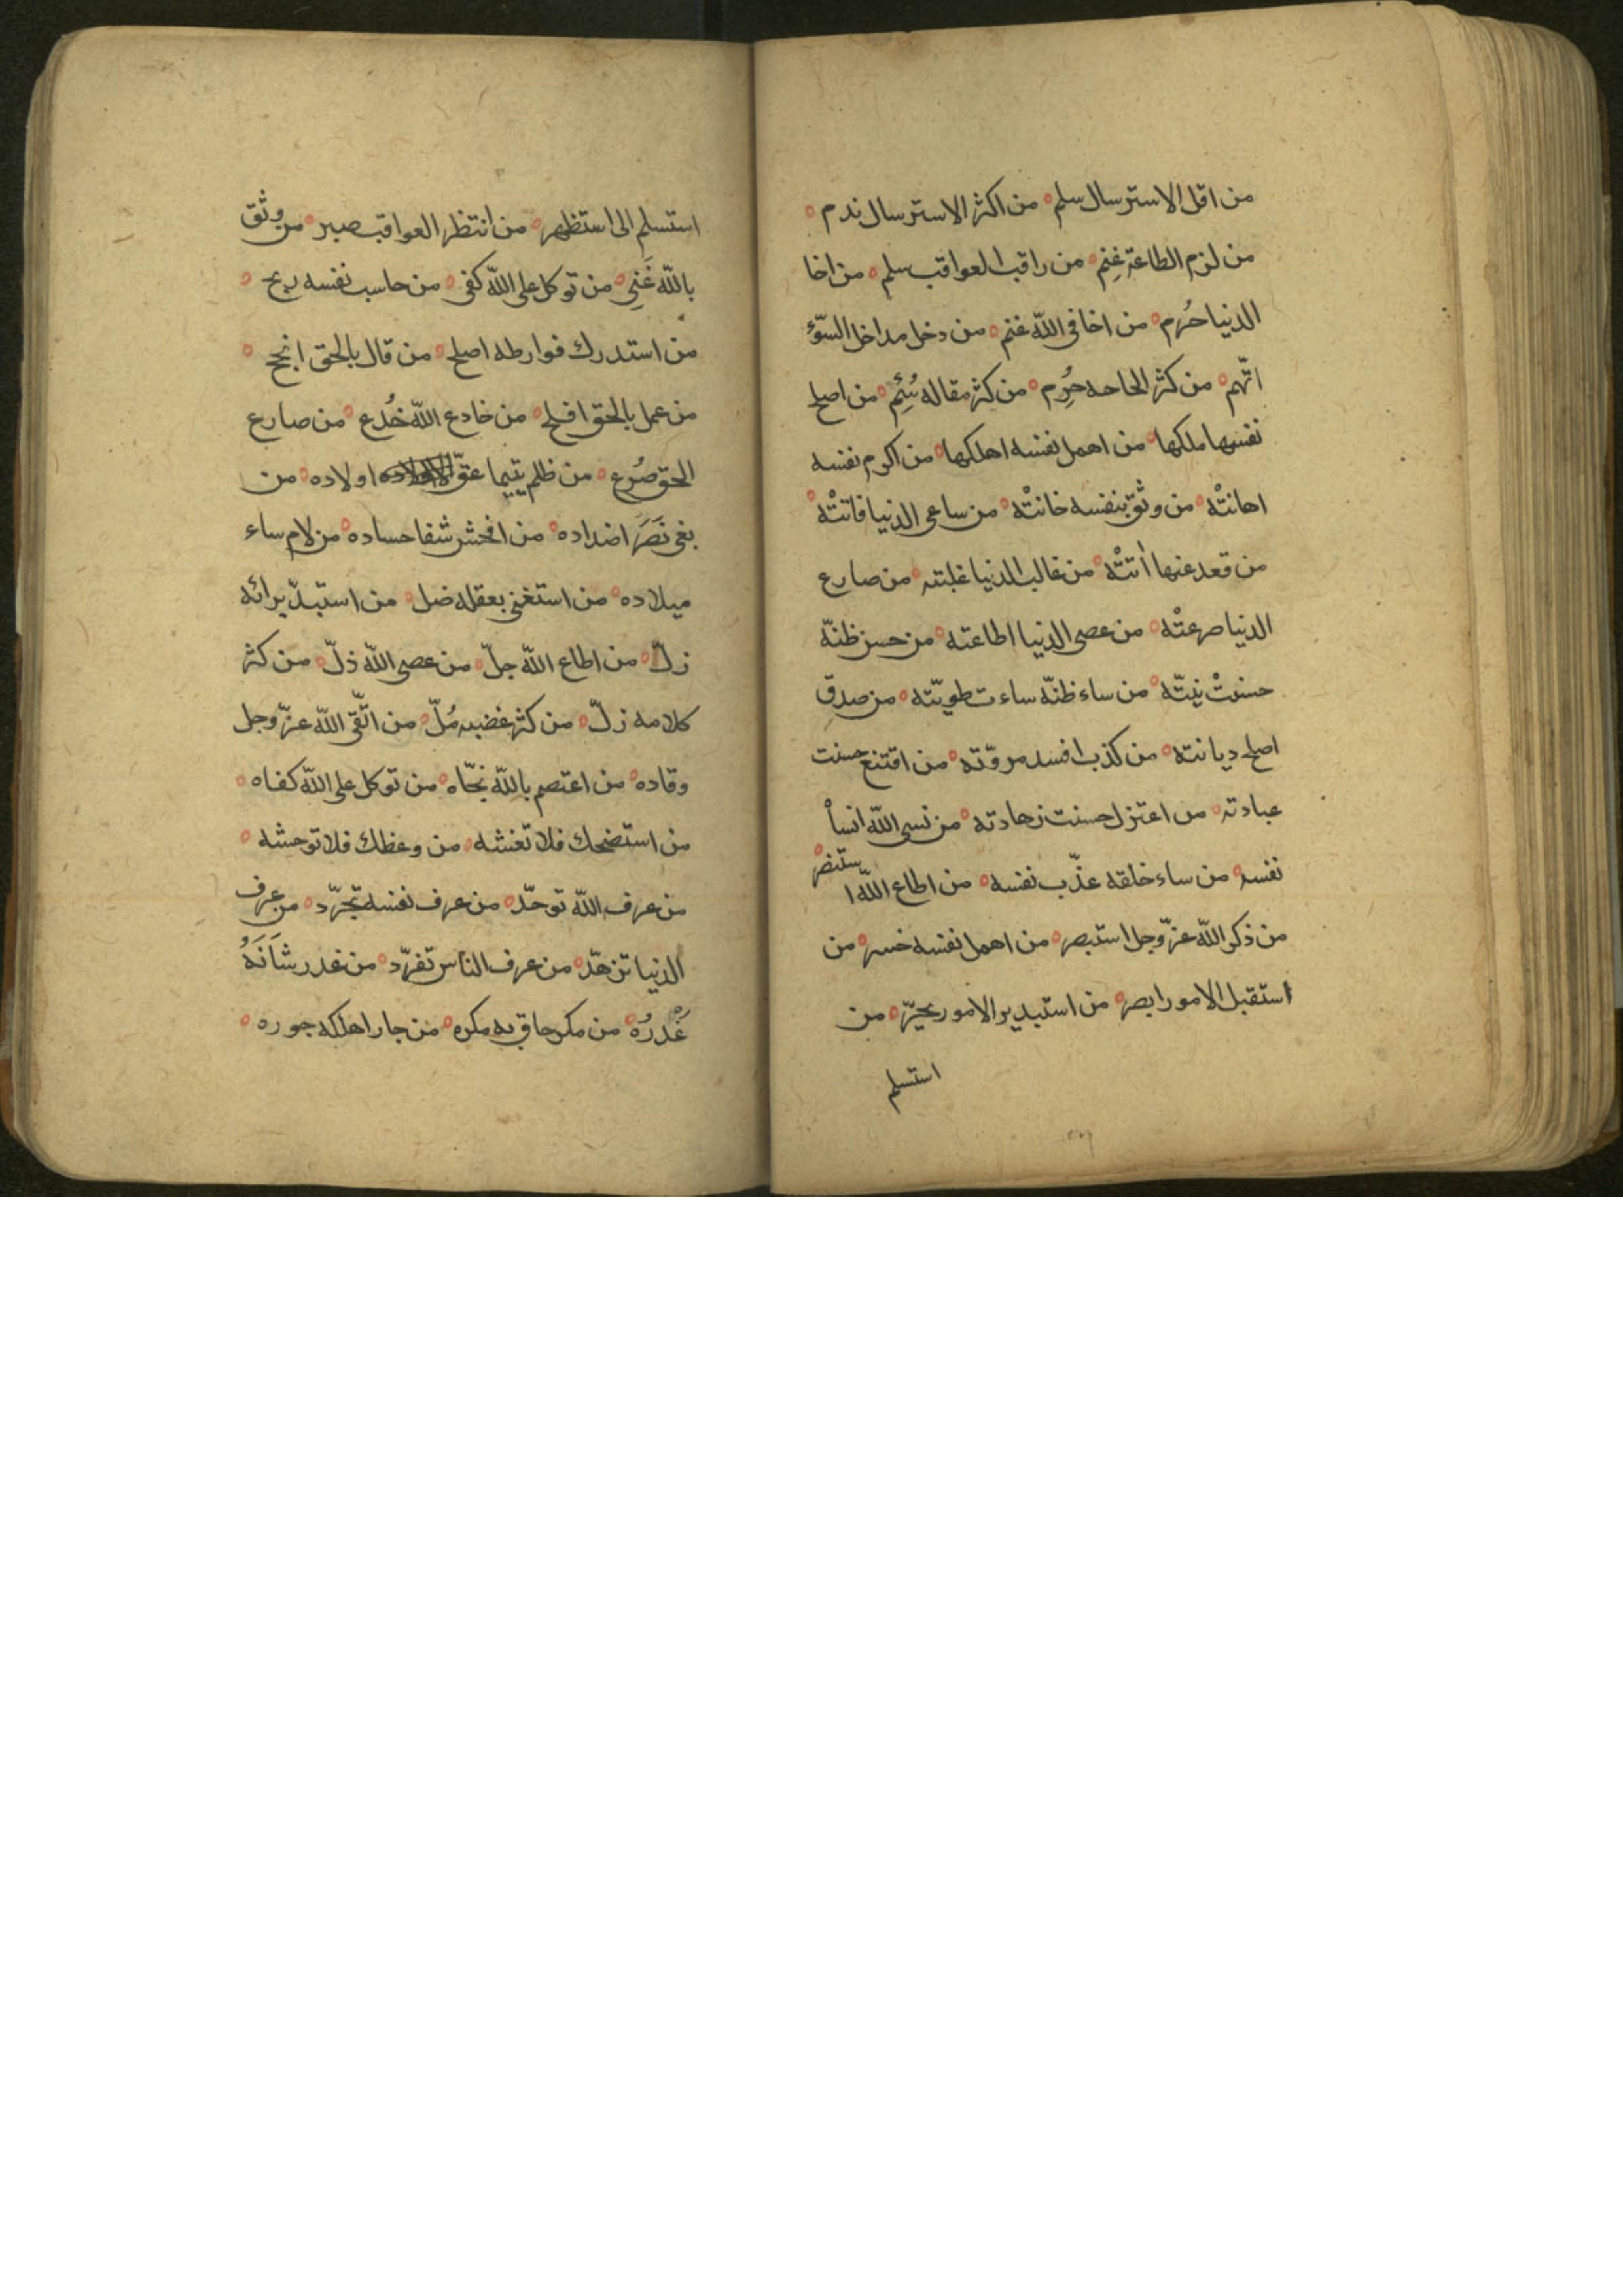 من اقل الاسترسال سلم ٥ من اكثر الاسترسال ندم ٥
من لزم الطاعة غنِم ٥ من راقب العواقب سلم ٥ من اخا
الدنيا حُرم ٥ من اخا فى اللّه غنم ٥ من دخل مداخل السّوء
اتّهم ٥ من كثر الحاحه حُرِم ٥ من كثر مقاله سُئِم ٥ من اصلح
نفسها ملكها ٥ من اهمل نفسه اهلكها ٥ من اكرم نفسه
اهانتْه ٥ من وثق بنفسه خانتْه ٥ من ساعى الدنيا فاتتْه ٥
من قعد عنها اتتْه ٥ من غالب الدنيا غلبته ٥ من صارع
الدنيا صرعتْه ٥ من عصى الدنيا اطاعته ٥ من حسن ظنّه
حسنتْ نيّته ٥ من ساء ظنّه ساءت طويّته ٥ من صدق
اصلح ديانته ٥ من كذب افسد مروّته ٥ من اقتنع حسنت
عبادته ٥ من اعتزل حسنت زهادته ٥ من نسى اللّه انسأ
نفسه ٥ من ساء خلقه عذّب نفسه ٥ من اطاع اللّه استنصر ٥
من ذكر اللّه عزّ وجل استبصر ٥ من اهمل نفسه خسر ٥ من
استقبل الامور ابصر ٥ من استبدبر الامور تحيّر ٥ من
استسلم
استسلم الى استظهر ٥ من انتظر العواقب صبر ٥ من وثق
باللّه غَنِى ٥ من توكل على اللّه كفى ٥ من حاسب نفسه ربح ٥
من استدرك فوارطه اصلح ٥ من قال بالحق انجح ٥
من عمل بالحق افلح ٥ من خادع اللّه خُدع ٥ من صارع
الحق صُرع ٥ من ظلم يتيما عقّ اولاده ٥ من
بغى نَصَرَ اضداده ٥ من افحش شفا حساده ٥ من لام ساء
ميلاده ٥ من استغنى بعقله ضل ٥ من استبدّ برائه
زلّ ٥ من اطاع اللّه جلّ ٥ من عصى اللّه ذلّ ٥ من كثر
كلامه زلّ ٥ من كثر غضبه مُلّ ٥ من اتّقى اللّه عزّ وجل
وقاده ٥ من اعتصم باللّه نجّاه ٥ من توكل على اللّه كفاه ٥
من استضحك فلا تغشه ٥ من وعظك فلا توحشه ٥
من عرف اللّه توحّد ٥ من عرف نفسه تجرّد ٥ من عرف
الدنيا تزهّد ٥ من عرف الناس تفرّد ٥ من غدر شَانَهُ
غَدرُه ٥ من مكر حاق به مكره ٥ من جار اهلكه جوره ٥